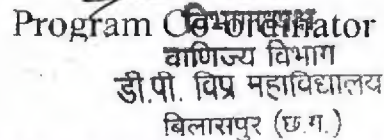 Program Co-ordinator
विभागाध्यक्ष
वाणिज्य विभाग
डी.पी. विप्र महाविद्यालय
बिलासपुर (छ.ग.)